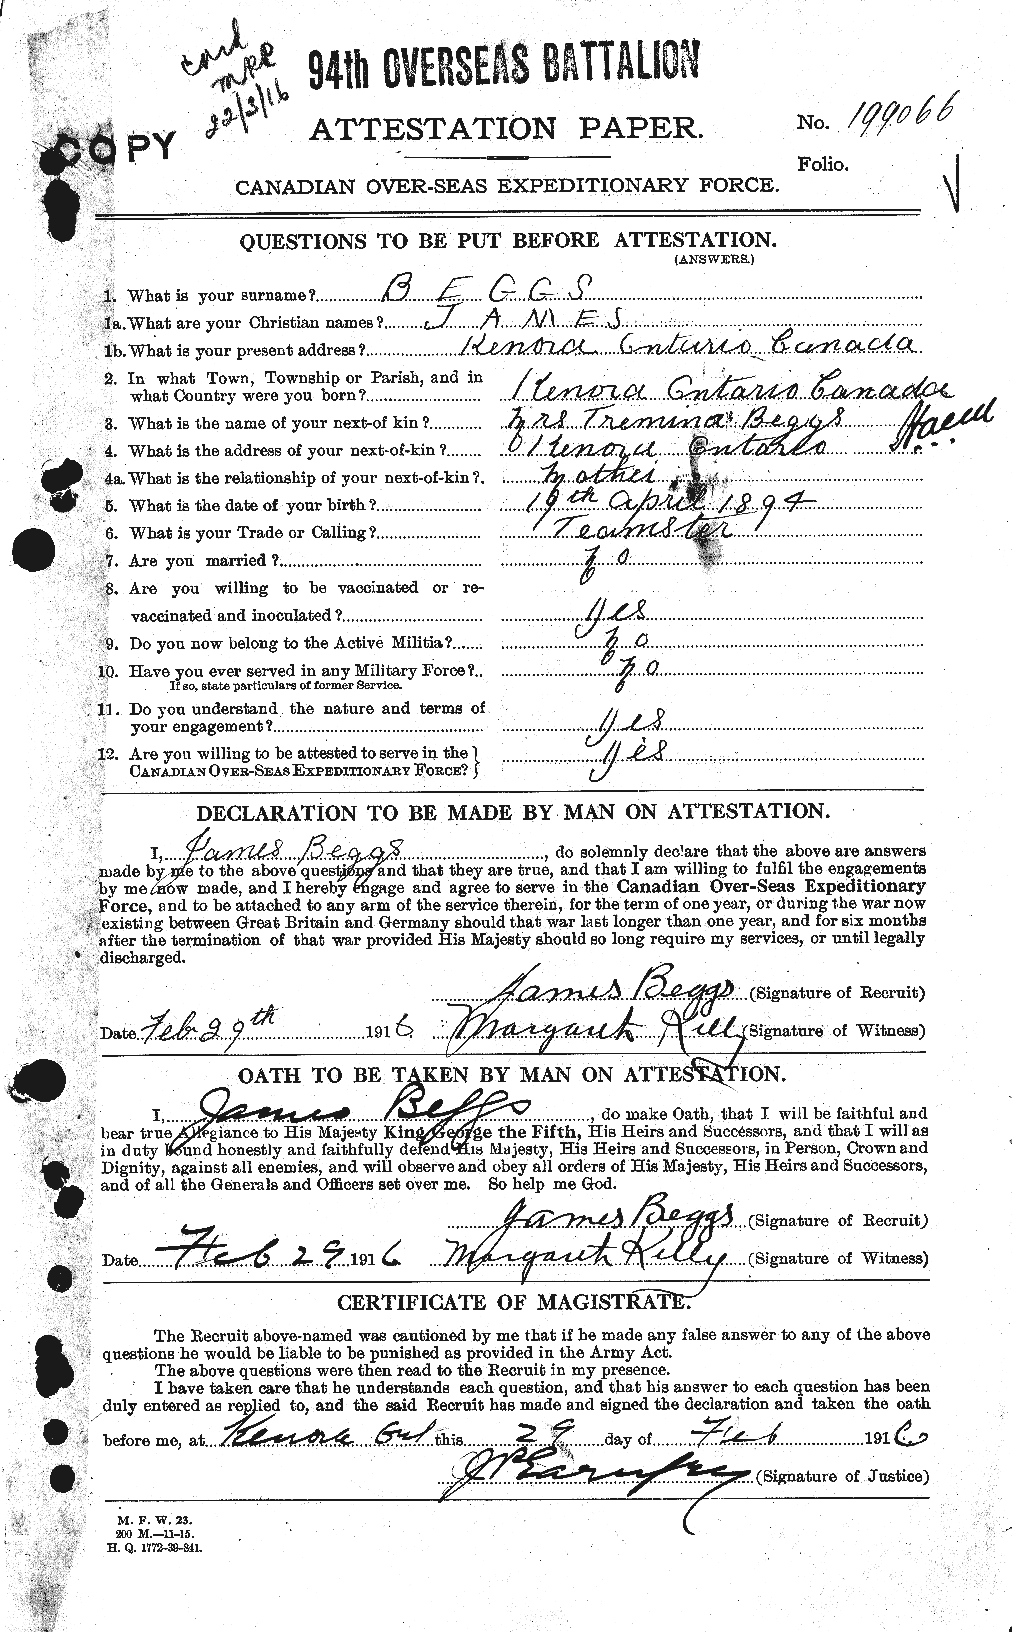 card
22/3/16
94th OVERSEAS BATTALION
COPY
ATTESTATION PAPER.
No. 199066
Folio.
CANADIAN OVER-SEAS EXPEDITIONARY FORCE.
QUESTIONS TO BE PUT BEFORE ATTESTATION.
(ANSWERS.)
1. What is your surname? BEGGS
1a. What are your Christian names? JAMES
1b. What is your present address? Kenora Ontario Canada
2. In what Town, Township or Parish, and in
what Country were you born? Kenora Ontario Canada
3. What is the name of your next-of kin? Mrs Tremina Beggs
4. What is the address of your next-of-kin? Kenora Ontario
4a. What is the relationship of your next-of-kin? Mother
5. What is the date of your birth? 19th April 1894
6. What is your Trade or Calling? Teamster
7. Are you married? No
8. Are you willing to be vaccinated or re-
vaccinated and inoculated? Yes
9. Do you now belong to the Active Militia? No
10. Have you ever served in any Military Force? No
If so, state particulars of former Service.
11. Do you understand the nature and terms of
your engagement? Yes
12. Are you willing to be attested to serve in the
CANADIAN OVER-SEAS EXPEDITIONARY FORCE? Yes
DECLARATION TO BE MADE BY MAN ON ATTESTATION.
I, James Beggs, do solemnly declare that the above are answers
made by me to the above questions and that they are true, and that I am willing to fulfil the engagements
by me now made, and I hereby engage and agree to serve in the Canadian Over-Seas Expeditionary
Force, and to be attached to any arm of the service therein, for the term of one year, or during the war now
existing between Great Britain and Germany should that war last longer than one year, and for six months
after the termination of that war provided His Majesty should so long require my services, or until legally
discharged.
James Beggs (Signature of Recruit)
Date Feb 29th 1916 Margaret Kelly (Signature of Witness)
OATH TO BE TAKEN BY MAN ON ATTESTATION.
I, James Beggs, do make Oath, that I will be faithful and
bear true Allegiance to His Majesty King George the Fifth, His Heirs and Successors, and that I will as
in duty bound honestly and faithfully defend His Majesty, His Heirs and Successors, in Person, Crown and
Dignity, against all enemies, and will observe and obey all orders of His Majesty, His Heirs and Successors,
and of all the Generals and Officers set over me. So help me God.
James Beggs (Signature of Recruit)
Date Feb 29 1916 Margaret Kelly (Signature of Witness)
CERTIFICATE OF MAGISTRATE.
The Recruit above-named was cautioned by me that if he made any false answer to any of the above
questions he would be liable to be punished as provided in the Army Act.
The above questions were then read to the Recruit in my presence.
I have taken care that he understands each question, and that his answer to each question has been
duly entered as replied to, and the said Recruit has made and signed the declaration and taken the oath
before me, at Kenora Ont this 29 day of Feb 1916
(Signature of Justice)
M. F. W. 23.
200 M.—11-15.
H. Q. 1772-39-841.